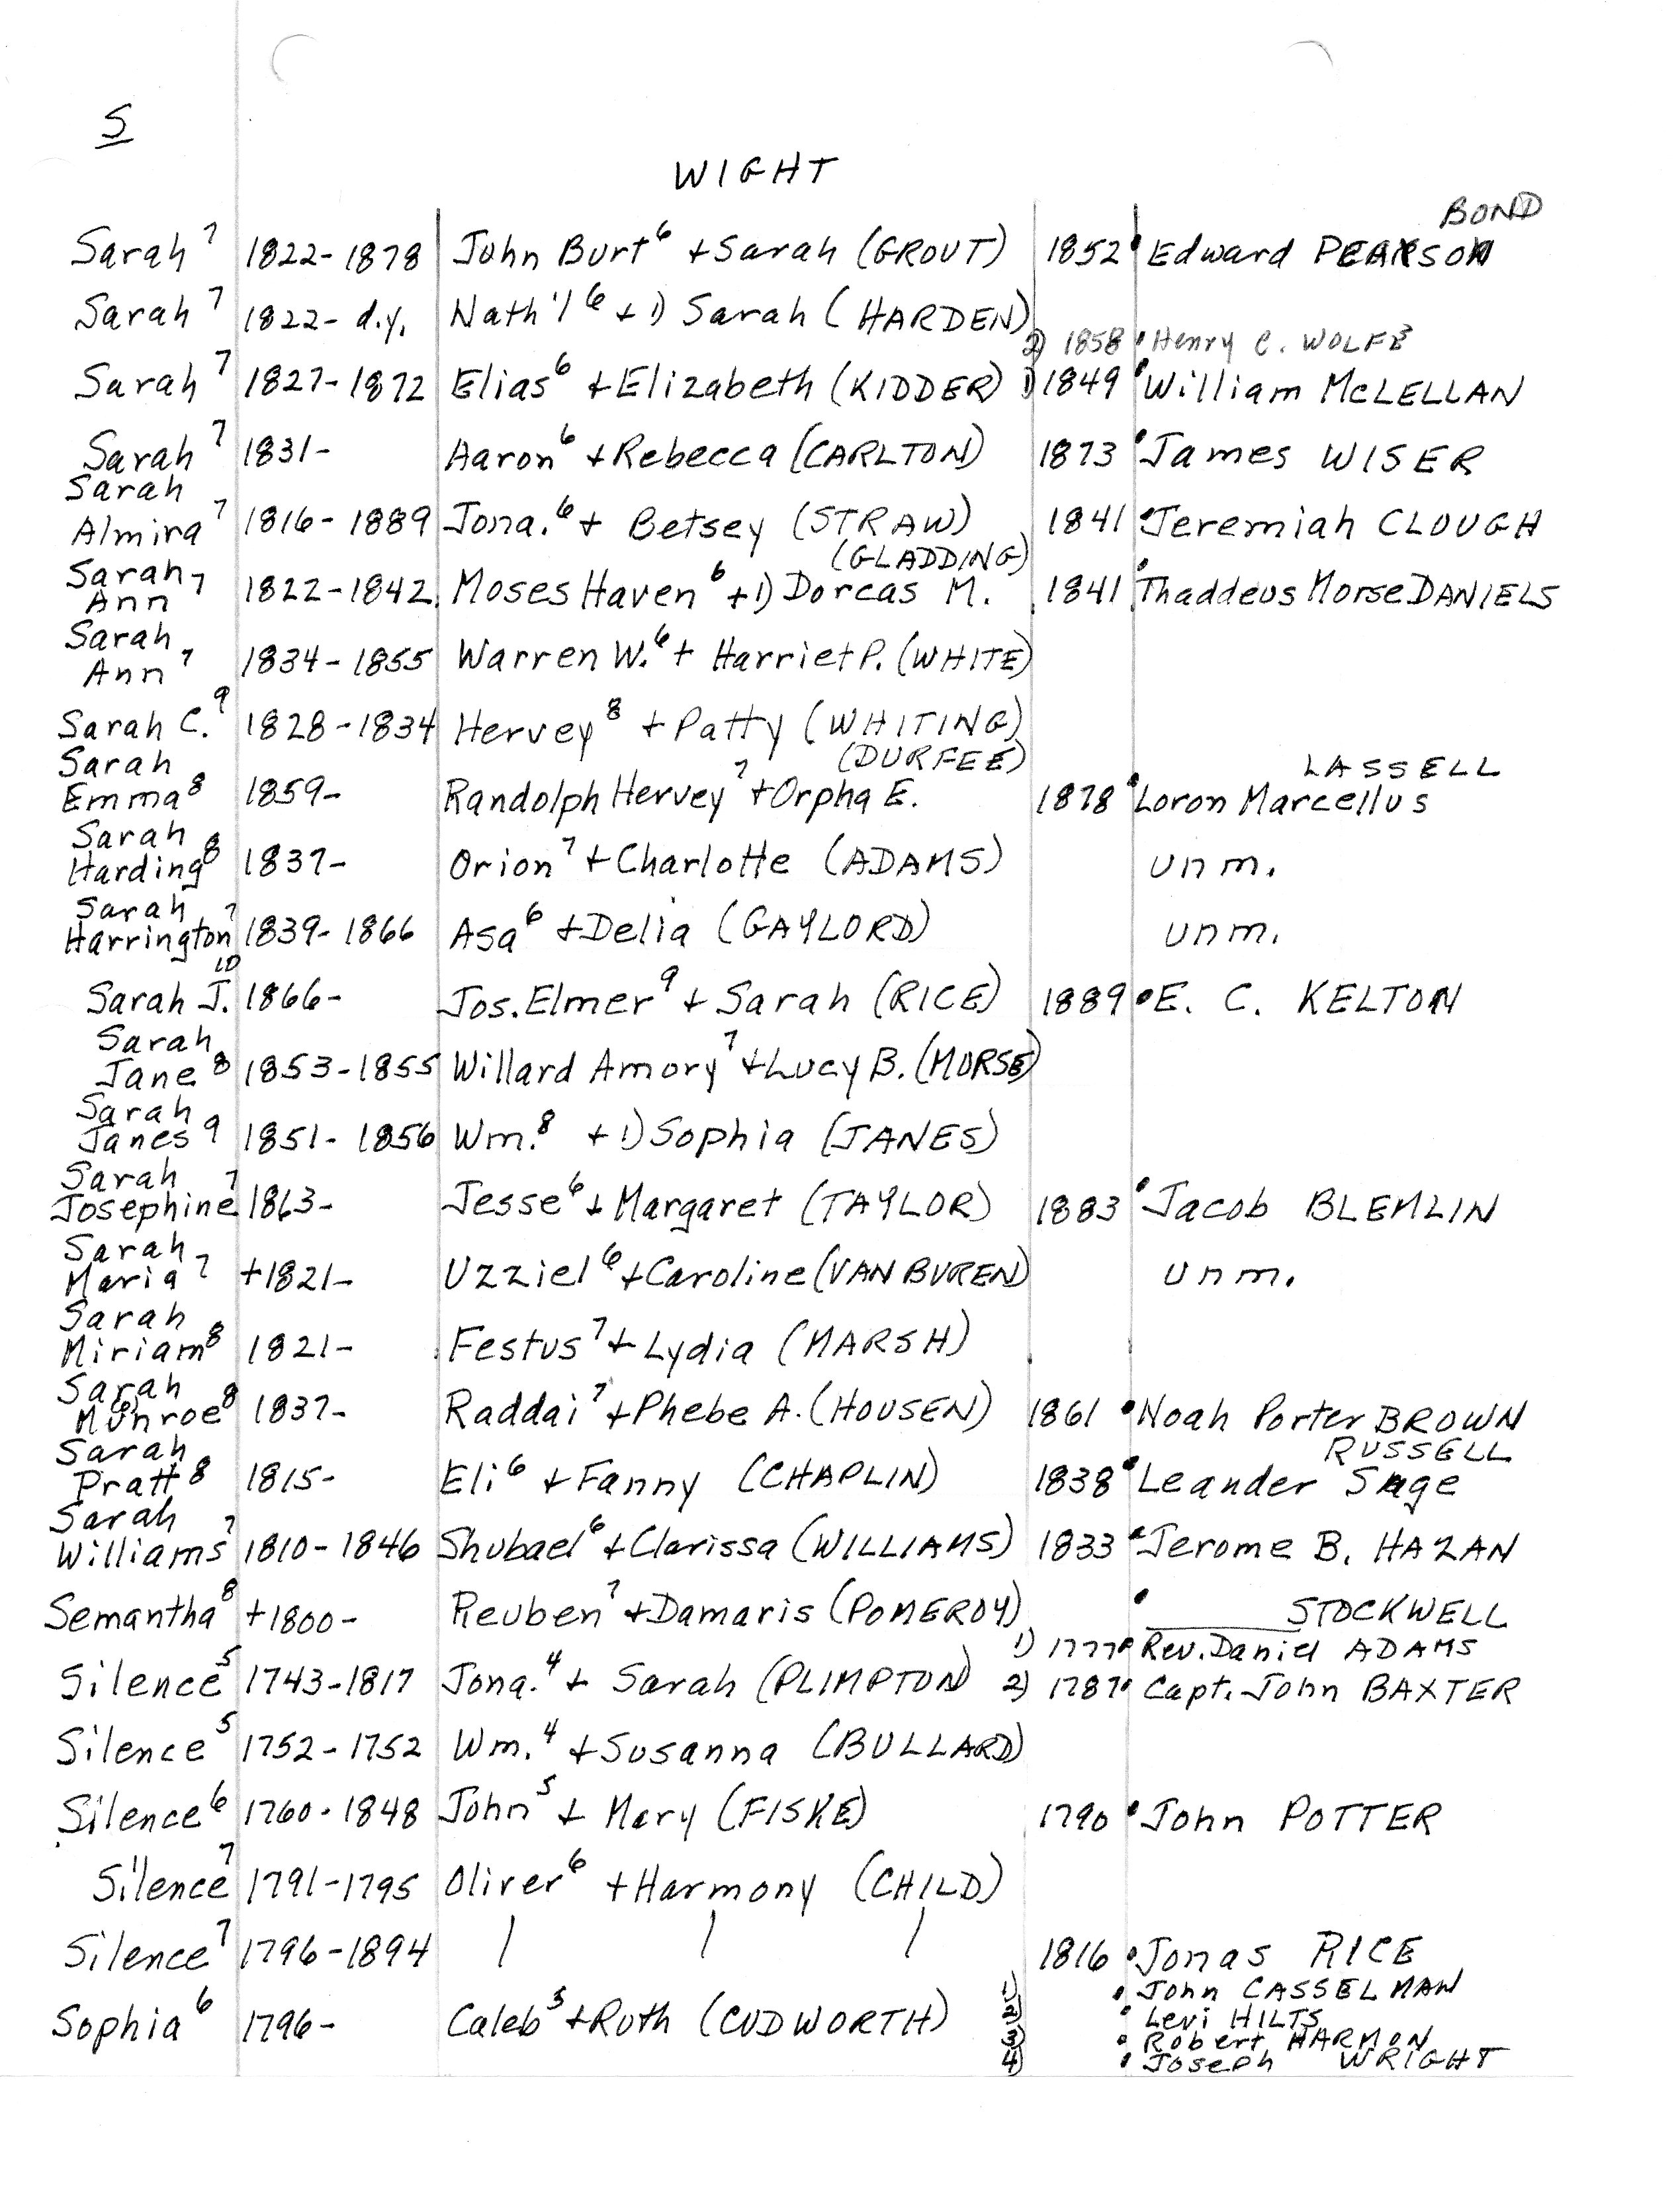 S
WIGHT
BOND
Sarah⁷ 1822-1878 John Burt⁶ + Sarah (GROUT) 1852 Edward PEARSON
Sarah⁷ 1822- d.y. Nath'l⁶ + 1) Sarah (HARDEN)
2) 1858 Henry C. WOLFE
Sarah⁷ 1827-1872 Elias⁶ + Elizabeth (KIDDER) 1) 1849 William McLELLAN
Sarah⁷ 1831- Aaron⁶ + Rebecca (CARLTON) 1873 James WISER
Sarah
Almira⁷ 1816-1889 Jona.⁶ + Betsey (STRAW) 1841 Jeremiah CLOUGH
(GLADDING)
Sarah
Ann⁷ 1822-1842 Moses Haven⁶ + 1) Dorcas M. 1841 Thaddeus Morse DANIELS
Sarah
Ann⁷ 1834-1855 Warren W.⁶ + Harriet P. (WHITE)
Sarah C.⁹ 1828-1834 Hervey⁸ + Patty (WHITING)
Sarah (DURFEE) LASSELL
Emma⁸ 1859- Randolph Hervey⁷ + Orpha E. 1878 Loron Marcellus
Sarah
Harding⁸ 1837- Orion⁷ + Charlotte (ADAMS) unm.
Sarah
Harrington⁷ 1839-1866 Asa⁶ + Delia (GAYLORD) unm.
Sarah J.¹⁰ 1866- Jos. Elmer⁹ + Sarah (RICE) 1889 E. C. KELTON
Sarah
Jane⁸ 1853-1855 Willard Amory⁷ + Lucy B. (MORSE)
Sarah
Janes⁹ 1851-1856 Wm.⁸ + 1) Sophia (JANES)
Sarah
Josephine⁷ 1863- Jesse⁶ + Margaret (TAYLOR) 1883 Jacob BLEMLIN
Sarah
Maria⁷ +1821- Uzziel⁶ + Caroline (VAN BUREN) unm.
Sarah
Miriam⁸ 1821- Festus⁷ + Lydia (MARSH)
Sarah
Munroe⁸ 1837- Raddai⁷ + Phebe A. (HOUSEN) 1861 Noah Porter BROWN
Sarah RUSSELL
Pratt⁸ 1815- Eli⁶ + Fanny (CHAPLIN) 1838 Leander Sage
Sarah
Williams⁷ 1810-1846 Shubael⁶ + Clarissa (WILLIAMS) 1833 Jerome B. HAZAN
Semantha⁸ +1800- Reuben⁷ + Damaris (POMEROY) STOCKWELL
1) 1777 Rev. Daniel ADAMS
Silence⁵ 1743-1817 Jona.⁴ + Sarah (PLIMPTON) 2) 1787 Capt. John BAXTER
Silence⁵ 1752-1752 Wm.⁴ + Susanna (BULLARD)
Silence⁶ 1760-1848 John⁵ + Mary (FISKE) 1790 John POTTER
Silence⁷ 1791-1795 Oliver⁶ + Harmony (CHILD)
Silence⁷ 1796-1894 | | | 1816 Jonas RICE
1) John CASSELMAN
Sophia⁶ 1796- Caleb⁵ + Ruth (CUDWORTH) 2) Levi HILTS
3) Robert HARMON
4) Joseph WRIGHT